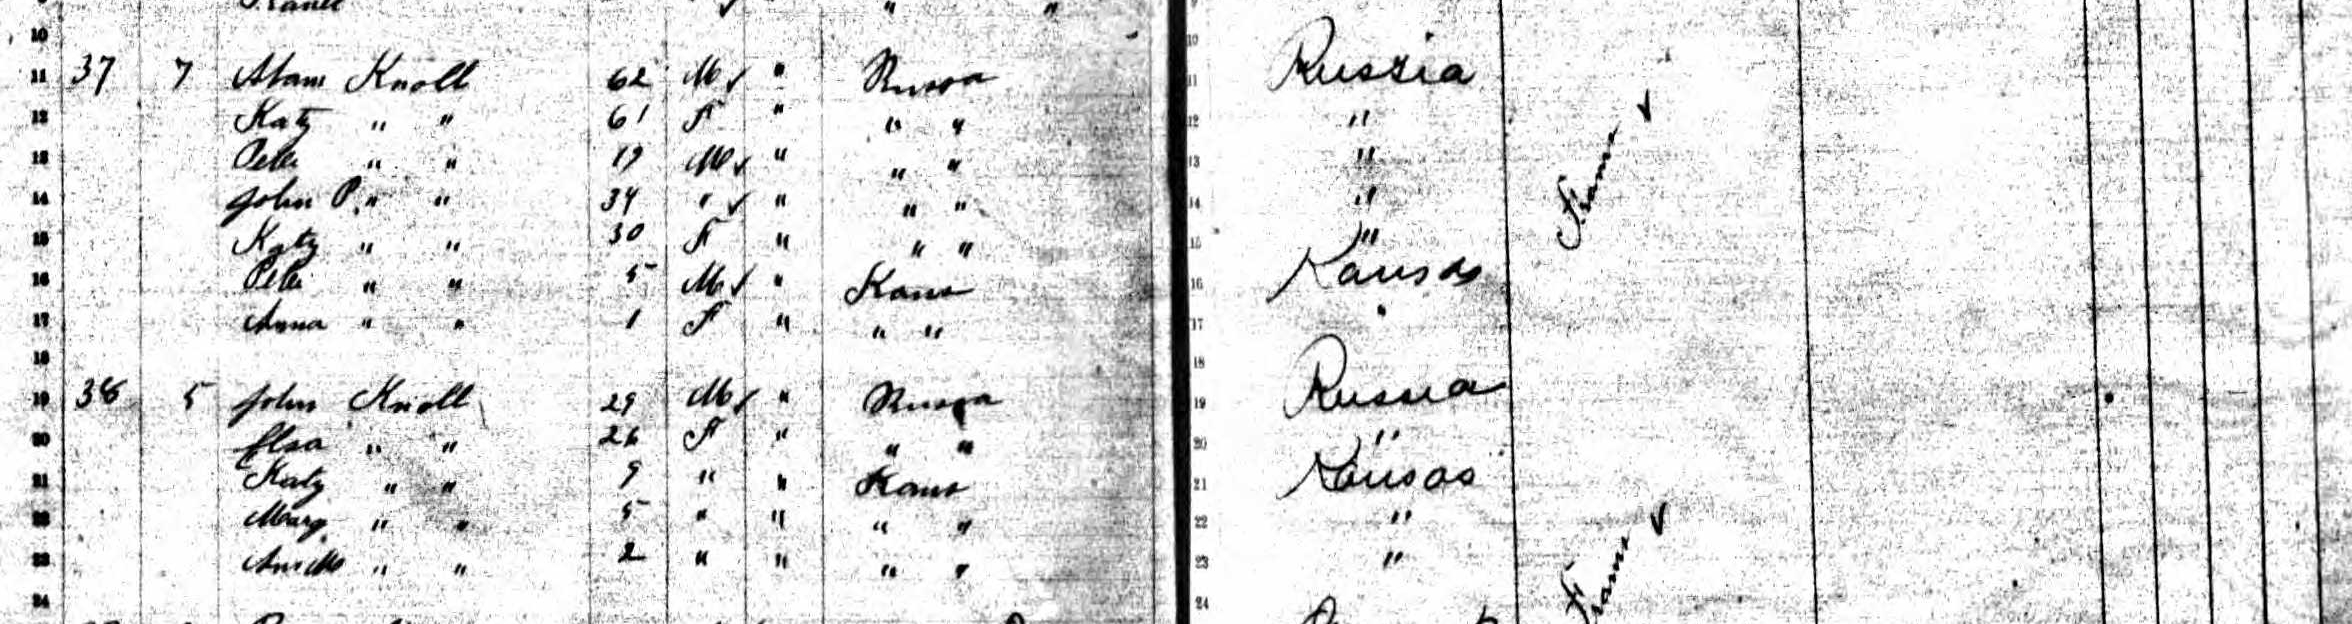 10
11 37 7 Adam Knoll 62 M ✓ " Russa 11 Russia
12 Katy " " 61 F " " " 12 "
13 Peter " " 19 M ✓ " " " 13 "
14 John P. " " 34 " ✓ " " " 14 " Frame ✓
15 Katy " " 30 F " " " 15 "
16 Peter " " 5 M ✓ " Kans 16 Kansas
17 Anna " " 1 F " " " 17 "
18 18
19 38 5 John Knoll 29 M ✓ " Russa 19 Russia
20 Elsa " " 26 F " " " 20 "
21 Katy " " 9 " " Kans 21 Kansas
22 Marg " " 5 " " " " 22 "
23 " " 2 " " " " 23 " Frame ✓
24 24